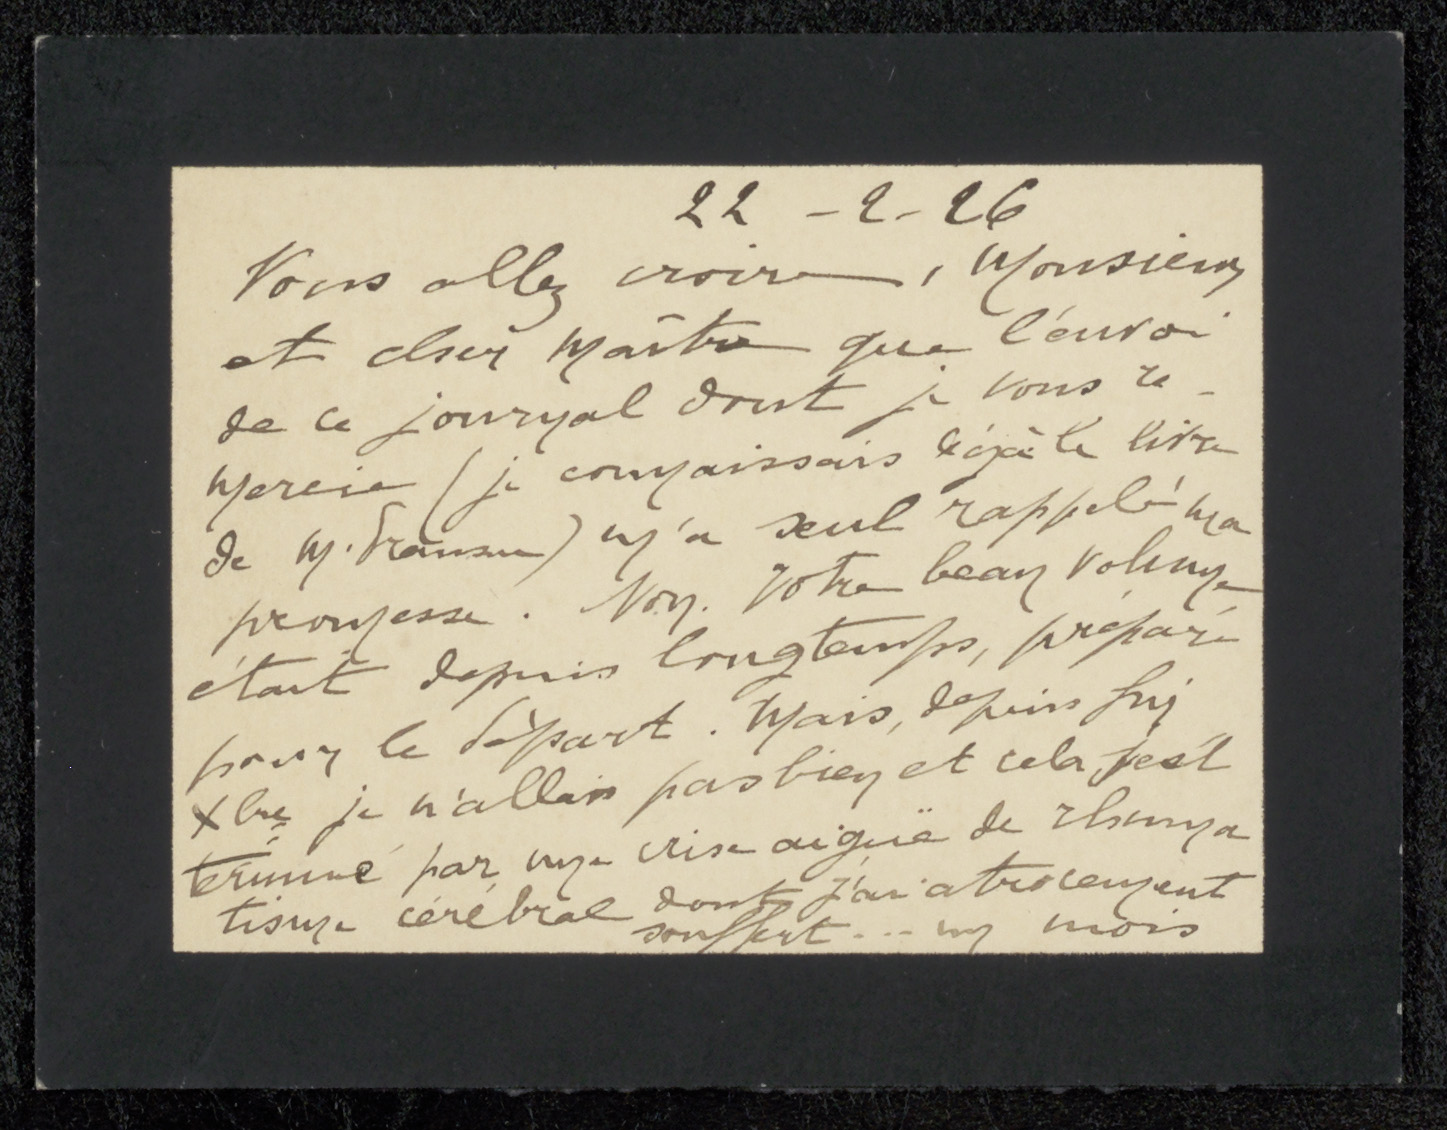 22 - 2 - 26
Vous allez croire, Monsieur
et cher Maître que l'envoi
de ce journal dont je vous re-
mercie (je connaissais déjà le livre
de M. Fransen) m'a seul rappelé ma
promesse. Non. Votre beau volume
était depuis longtemps, préparé
pour le départ. Mais, depuis fin
Xbre je n'allais pas bien et cela s'est
terminé par une crise aiguë de rhuma
tisme cérébral dont j'ai atrocement
souffert... un mois